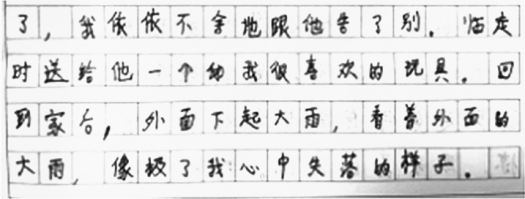 了，我依依不舍地跟他告了别．临走
时送给他一个我很喜欢的玩具．回
到家后，外面下起大雨，看着外面的
大雨，像极了我心中失落的样子．